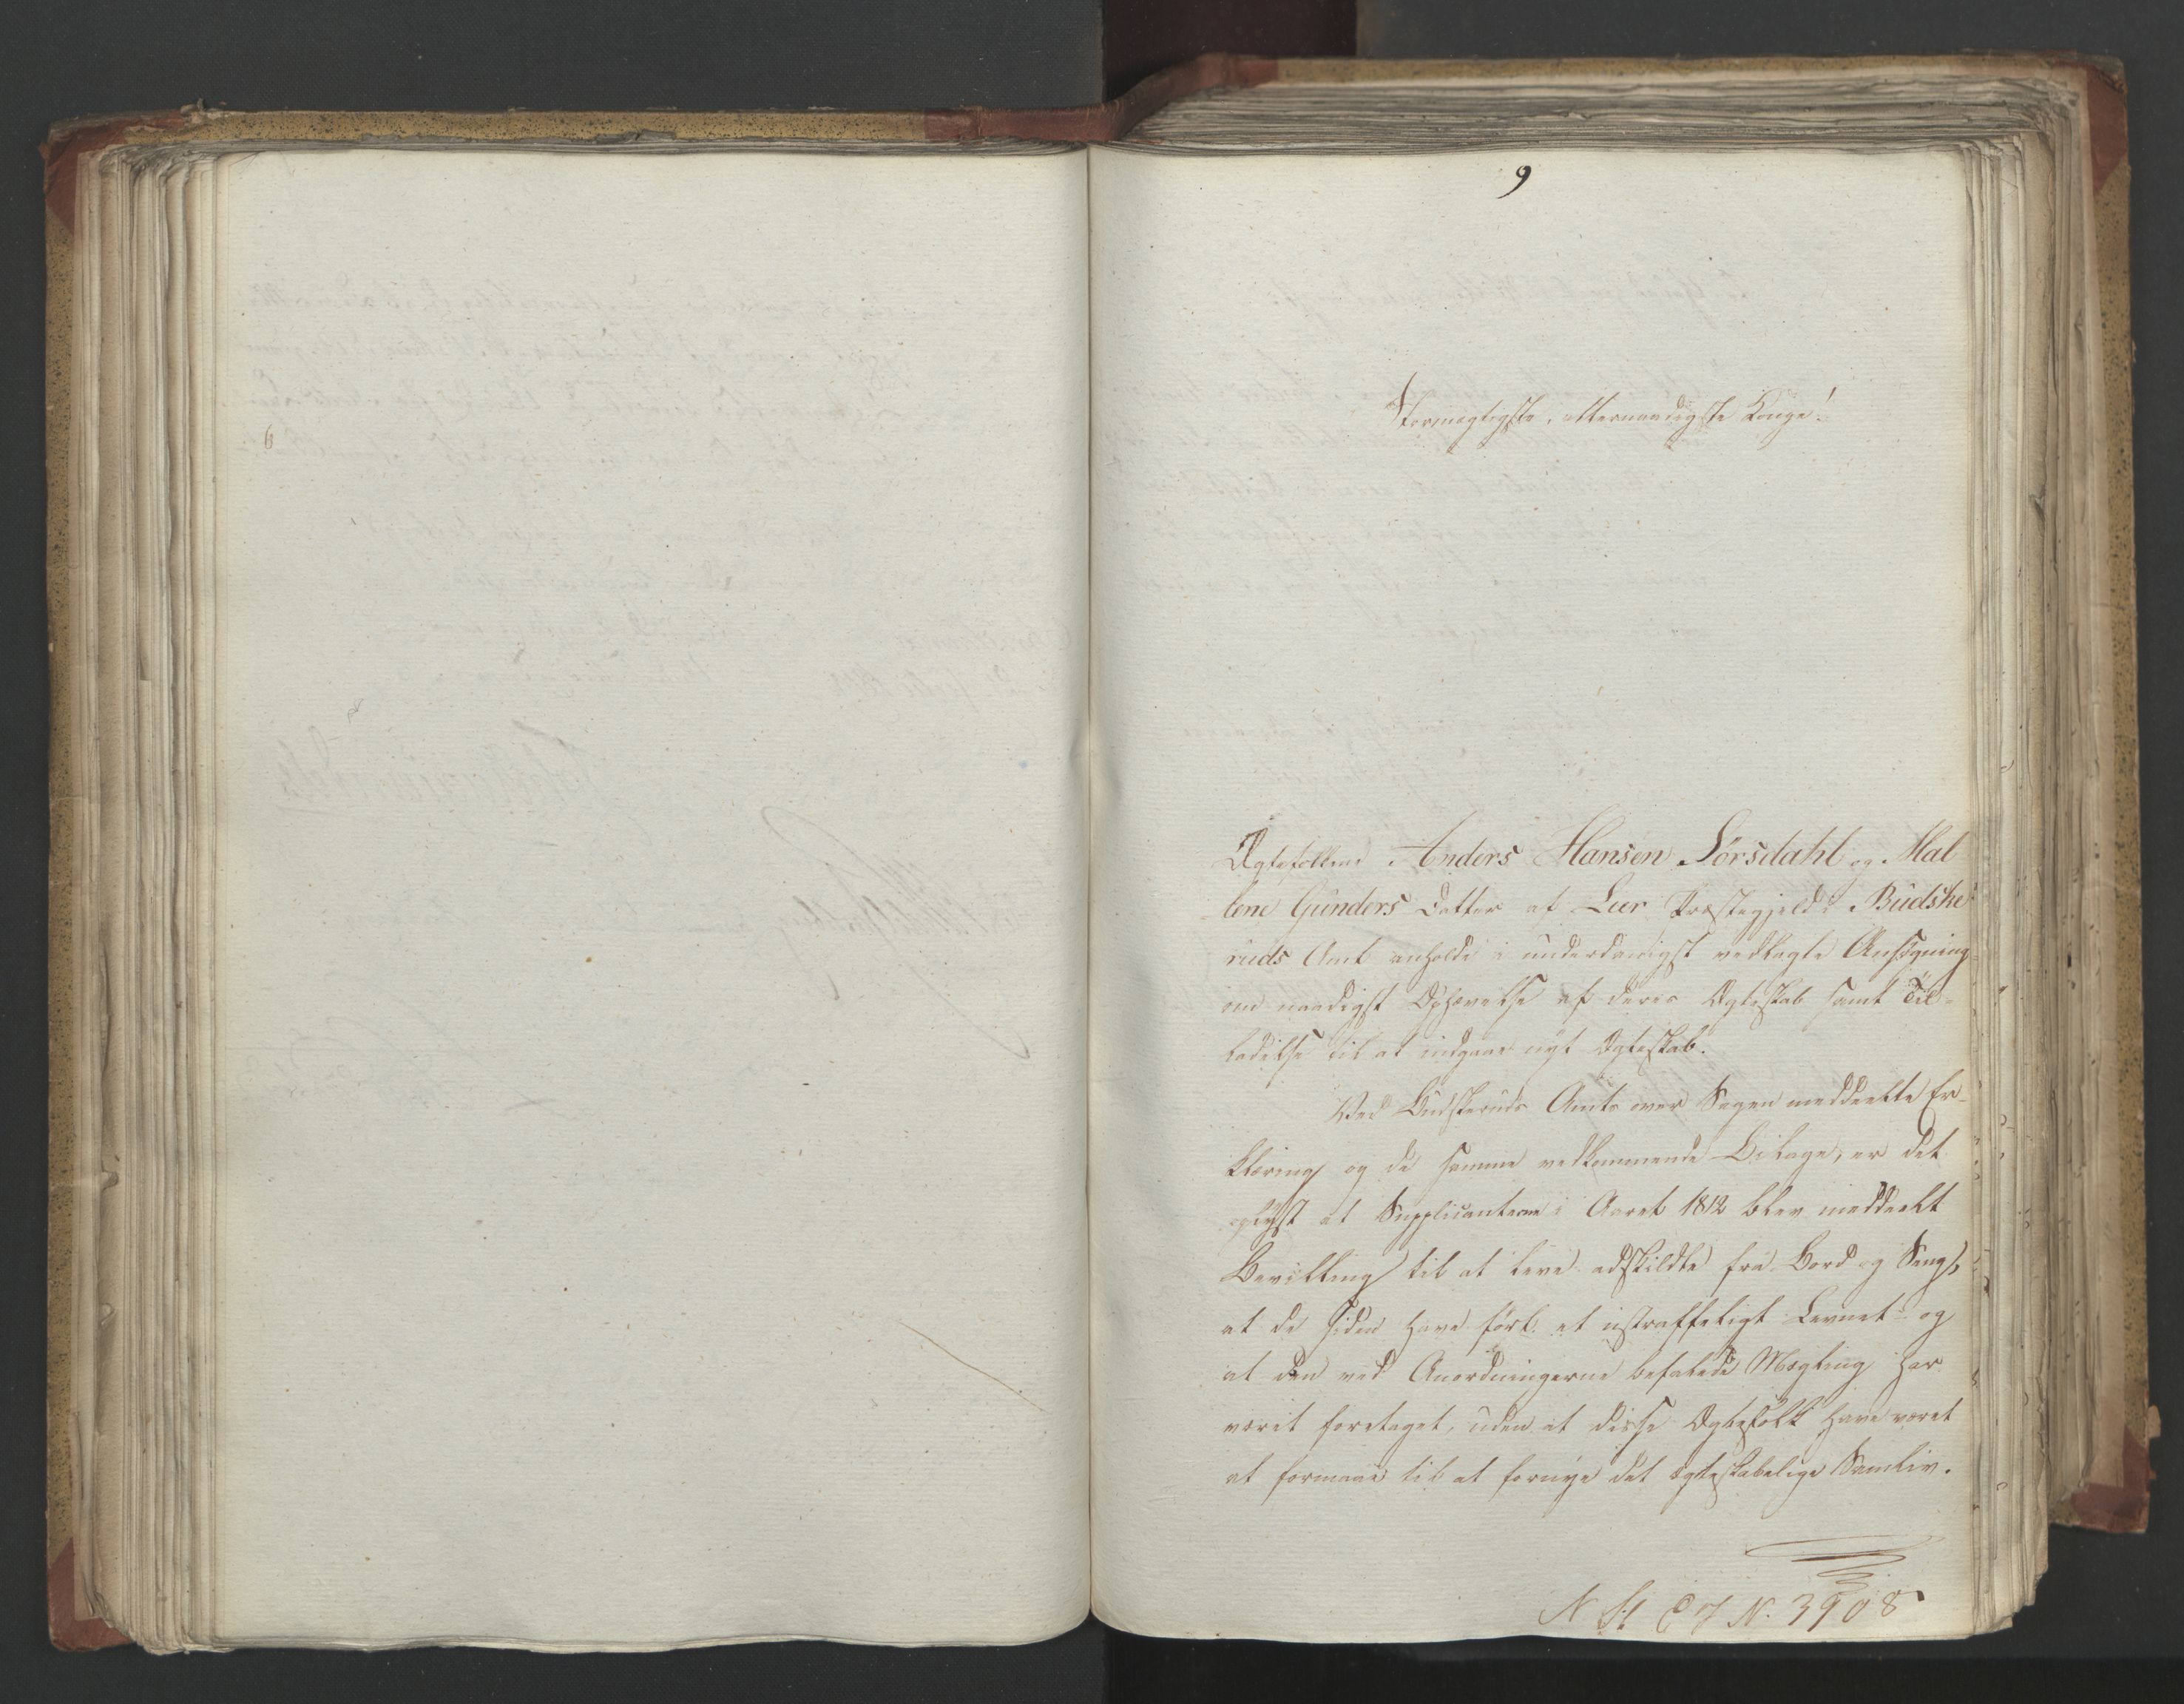 9
Stormægtigste, allernaadigste Konge!
Ægtefolkene Anders Hansen Sørsdahl og Mal
lene Gunders Datter af Lier Præstegjeld i Budske
ruds Amt anholde i underdanigst vedlagte Ansøgning
om naadigst Ophævelse af deres Ægteskab samt Til-
ladelse til at indgaae nyt Ægteskab.
Ved Budskeruds Amts over Sagen meddeelte Er-
klæring og de samme vedkommende Bilage, er det
oplyst at Supplicanterne i Aaret 1812 blev meddeelt
Bevilling til at leve adskildte fra Bord og Seng,
at de siden have ført et ustraffeligt Levnet og
at den ved Anordningerne befalede Mægling har
været foretaget, uden at disse Ægtefolk have været
at formaae til at fornye det ægteskabelige Samliv.
N St C J N. 3908